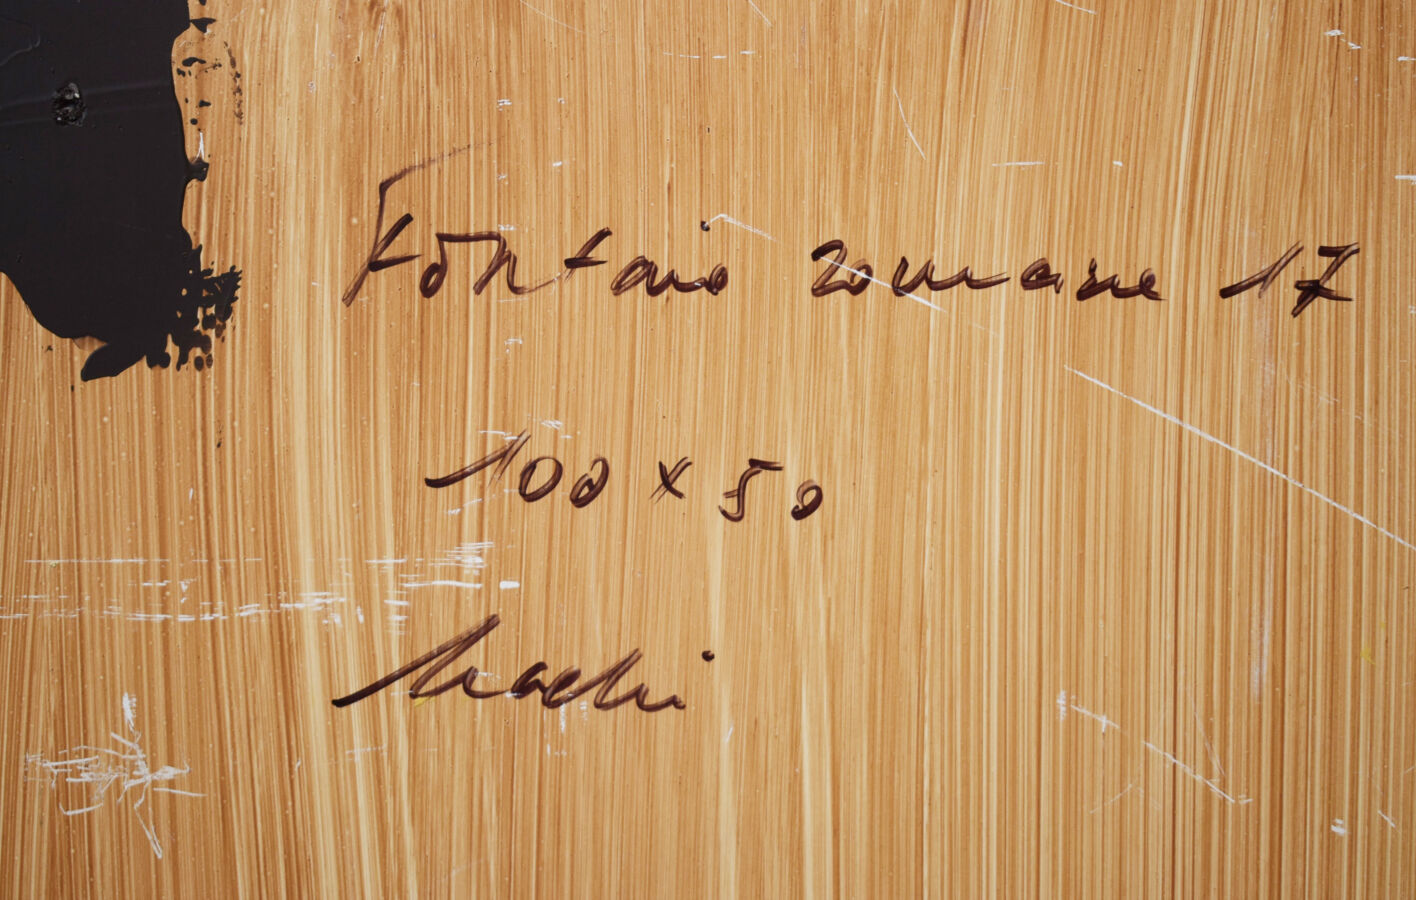 Fontane romane 17
100 x 50